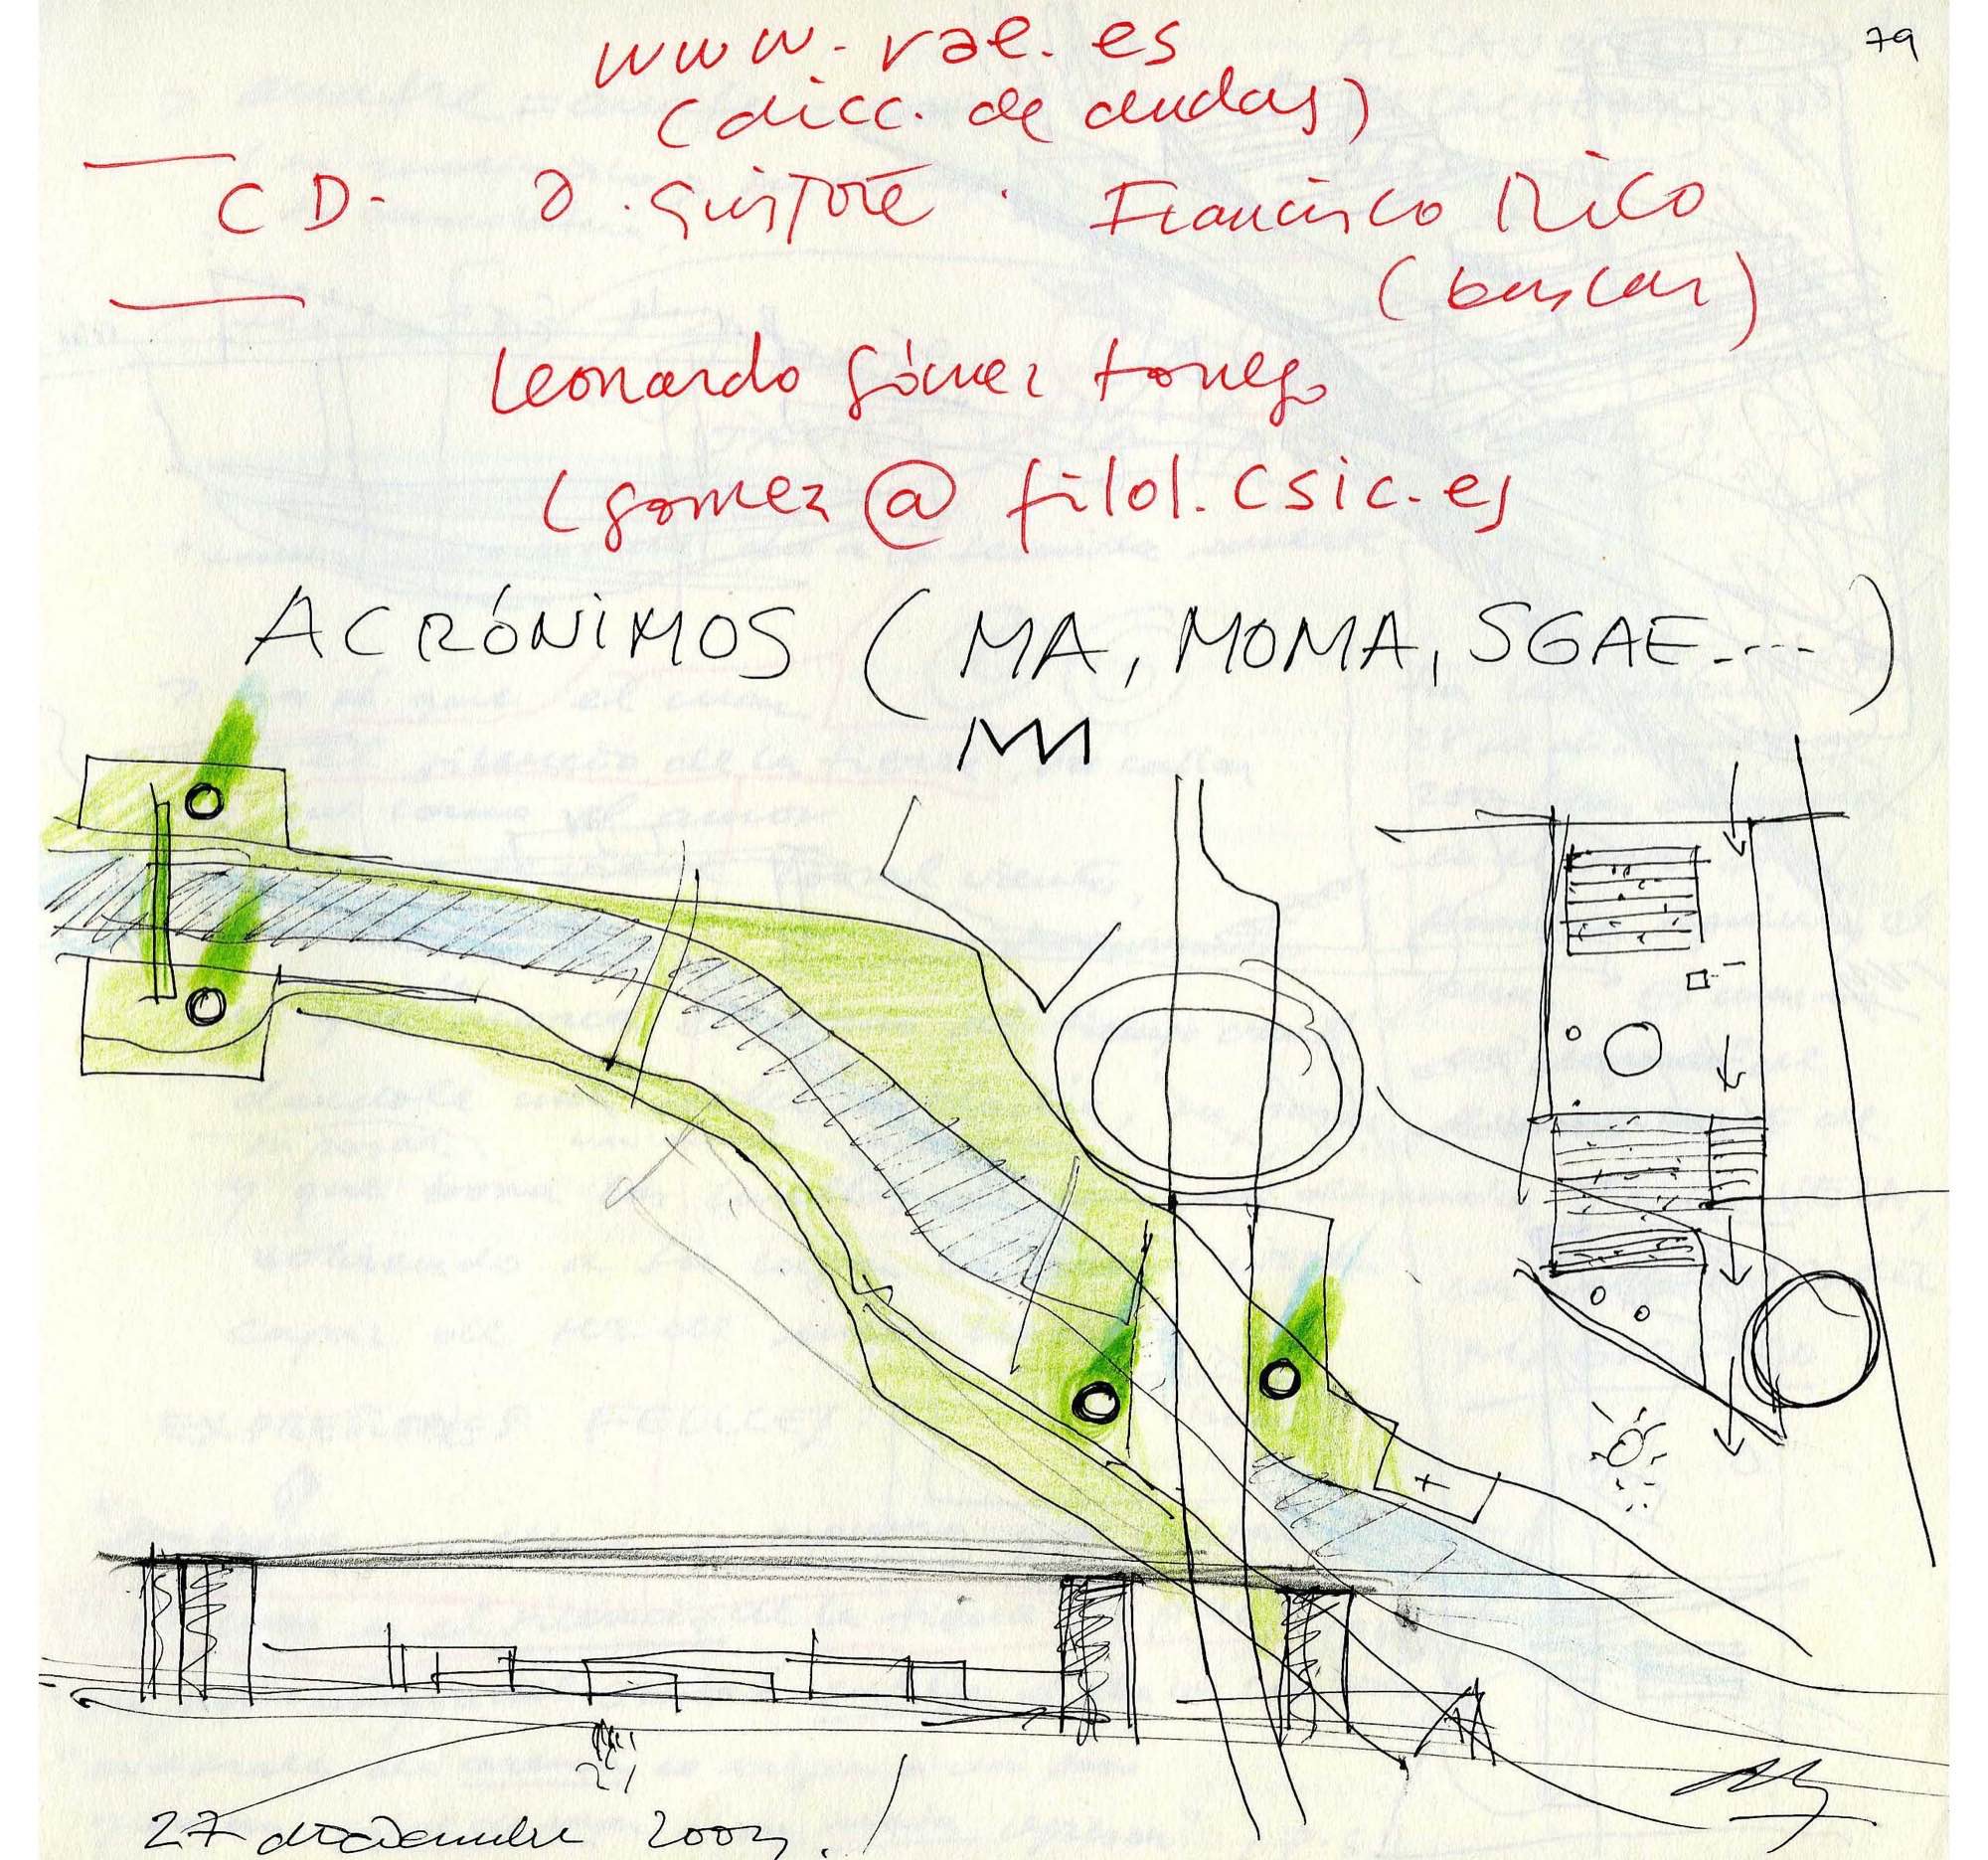 79
www.rae.es
(dicc. de dudas)
CD. Quijote . Francisco Rico
(buscar)
Leonardo Gómez Torrego
lgomez@filol.csic.es
ACRÓNIMOS (MA, MOMA, SGAE....)
27 diciembre